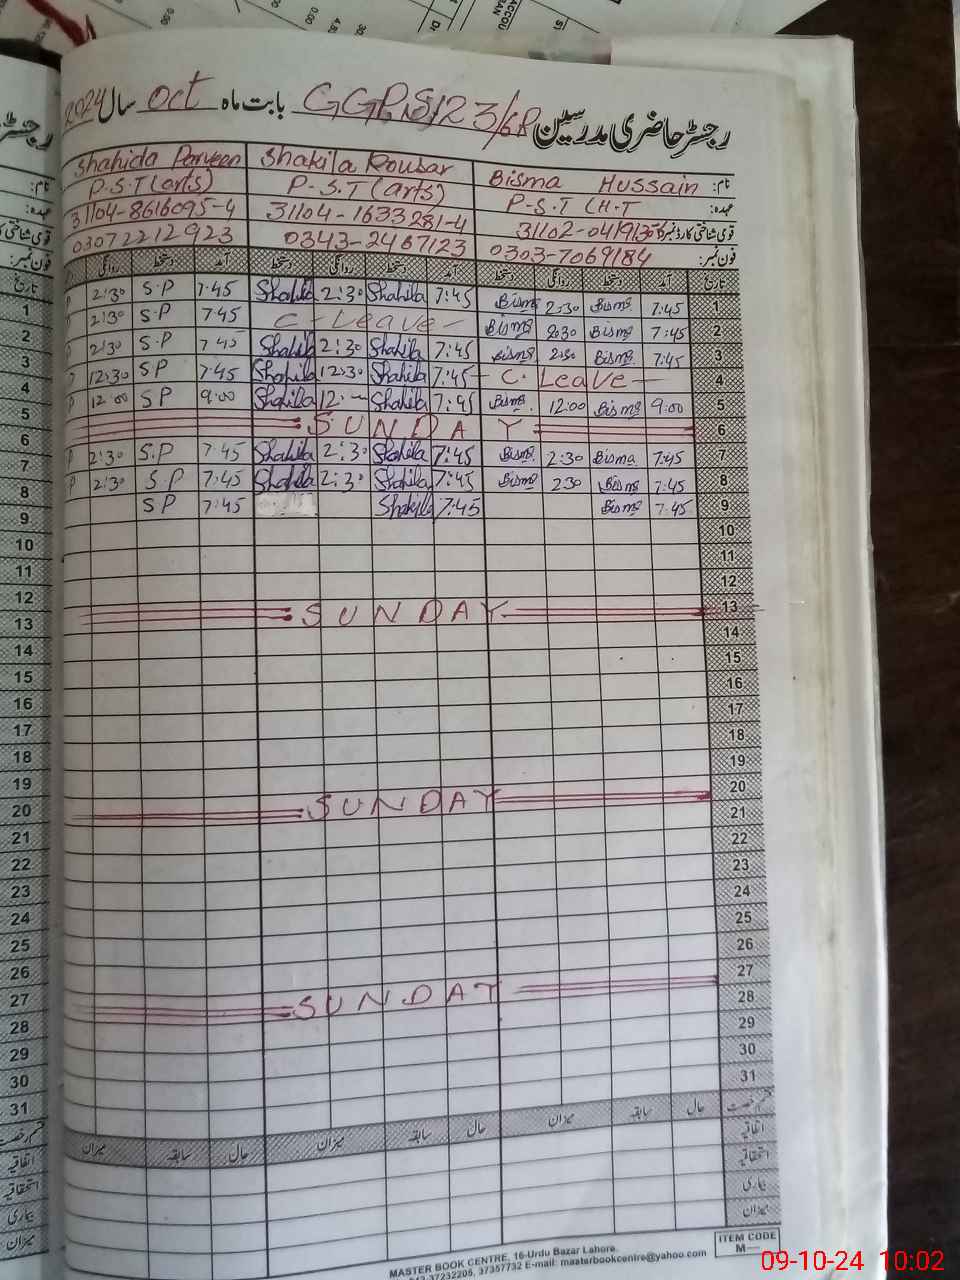 رجسٹر حاضری مدرسین GGPS 123/6R بابت ماہ Oct سال 2024
نام: Bisma Hussain Shakila Kousar Shahida Parveen
عہدہ: P.S.T (H.T P-S.T (arts) P.S.T (arts)
قومی شناختی کارڈ نمبر: 31104-1633281-4 31104-8616095-4
فون نمبر: 0303-7069184 0343-2467123 03072212923
تاریخ آمد دستخط روانگی دستخط آمد دستخط روانگی دستخط آمد دستخط روانگی
1 7:45 Bisma 2:30 Bisma 7:45 Shakila 2:30 Shakila 7.45 S.P 2:30
2 7:45 Bisma 2:30 Bisma C - Leave - 7.45 S.P 2:30
3 7:45 Bisma 2:30 Bisma 7:45 Shakila 2:30 Shakila 7.45 S.P 2:30
4 - C. Leave - 7:45 Shakila 12:30 Shakila 7.45 SP 12:30
5 9:00 Bisma 12:00 Bisma 7:45 Shakila 12:- Shakila 9.00 SP 12:00
6 SUNDAY
7 7:45 Bisma 2:30 Bisma 7:45 Shakila 2:30 Shakila 7.45 S.P 2:30
8 7:45 Bisma 2:30 Bisma 7:45 Shakila 2:30 Shakila 7.45 S.P 2:30
9 7:45 Bisma 7:45 Shakila 7.45 SP
10
11
12
13 SUNDAY
14
15
16
17
18
19
20 SUNDAY
21
22
23
24
25
26
27 SUNDAY
28
29
30
31
قسم رخصت حال سابقہ میزان حال سابقہ میزان حال سابقہ میزان
اتفاقیہ
استحقاقیہ
بیماری
میزان
MASTER BOOK CENTRE, 16-Urdu Bazar Lahore.
042-37232205, 37357732 E-mail: maaterbookcentre@yahoo.com
ITEM CODE
M—
09-10-24 10:02